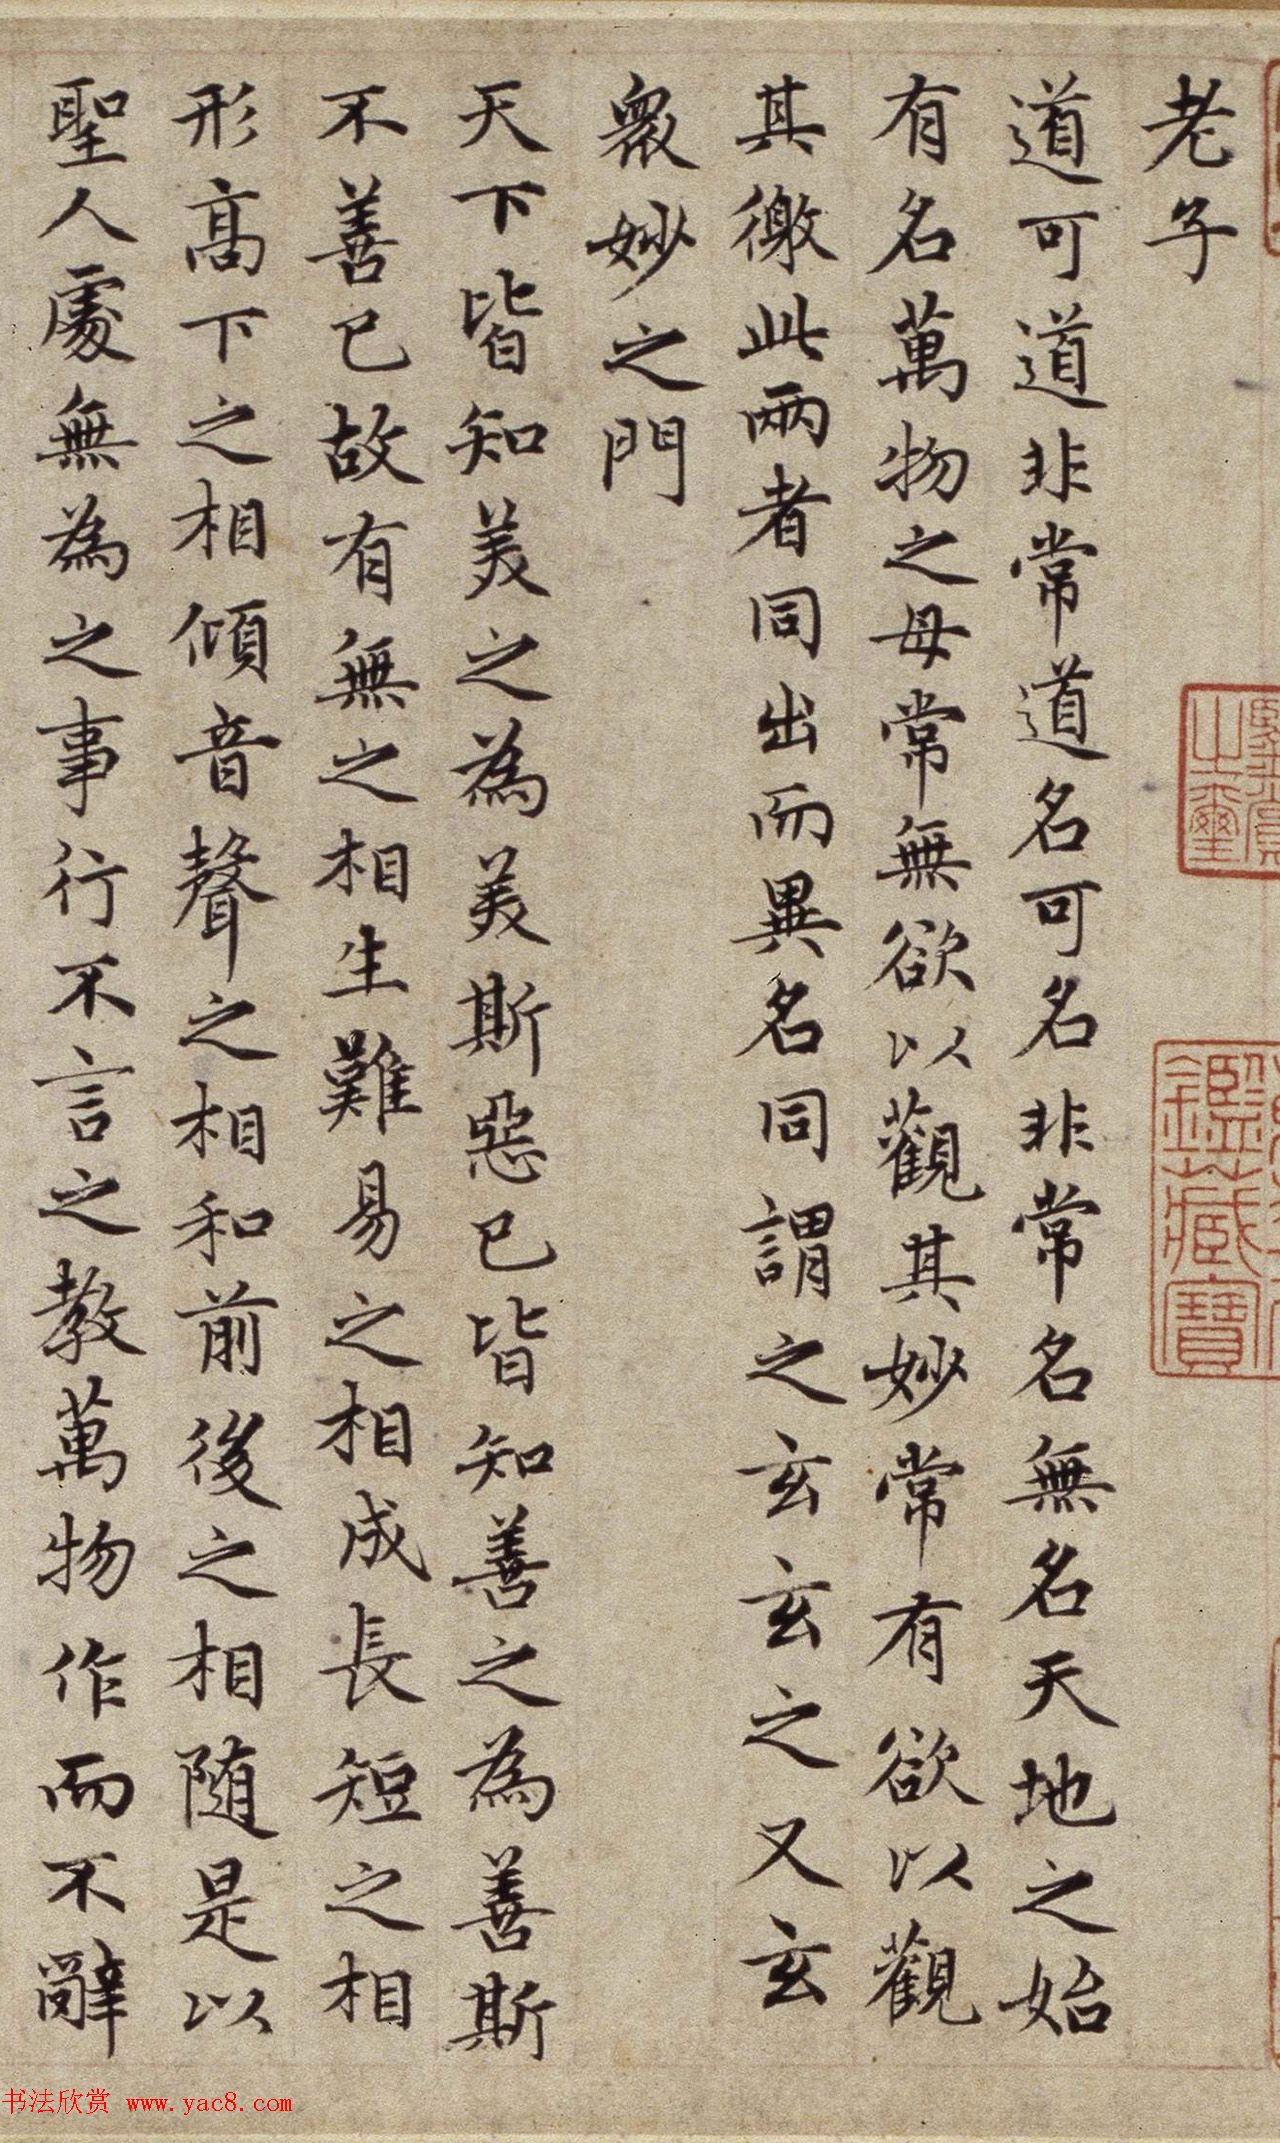 老子
道可道非常道名可名非常名無名天地之始
有名萬物之母常無欲以觀其妙常有欲以觀
其徼此兩者同出而異名同謂之玄玄之又玄
衆妙之門
天下皆知美之為美斯惡已皆知善之為善斯
不善已故有無之相生難易之相成長短之相
形高下之相傾音聲之相和前後之相随是以
聖人處無為之事行不言之教萬物作而不辭
鑑藏寶
之璽
书法欣赏 www.yac8.com